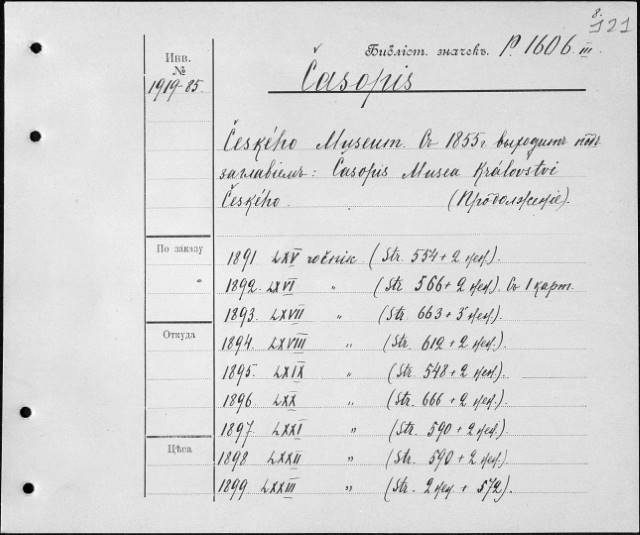 8.
121
Библіот. значекъ. P. 1606 III.
Инв.
№
1919-85.
Časopis
Českého Museum. Съ 1855 г. выходитъ подъ
заглавіемъ: Časopis Musea Království
Českého. (Продолженіе).
По заказу
1891 LXV ročník (Str. 554 + 2 неп.).
1892. LXVI " (Str. 566 + 2 неп.). Съ 1 карт.
1893. LXVII " (Str. 663 + 3 неп.).
Откуда
1894. LXVIII " (Str. 612 + 2 неп.).
1895. LXIX " (Str. 548 + 2 неп.).
1896 LXX " (Str. 666 + 2 неп.).
1897. LXXI " (Str. 590 + 2 неп.).
Цѣна
1898 LXXII " (Str. 590 + 2 неп.).
1899 LXXIII " (Str. 2 неп + 572).